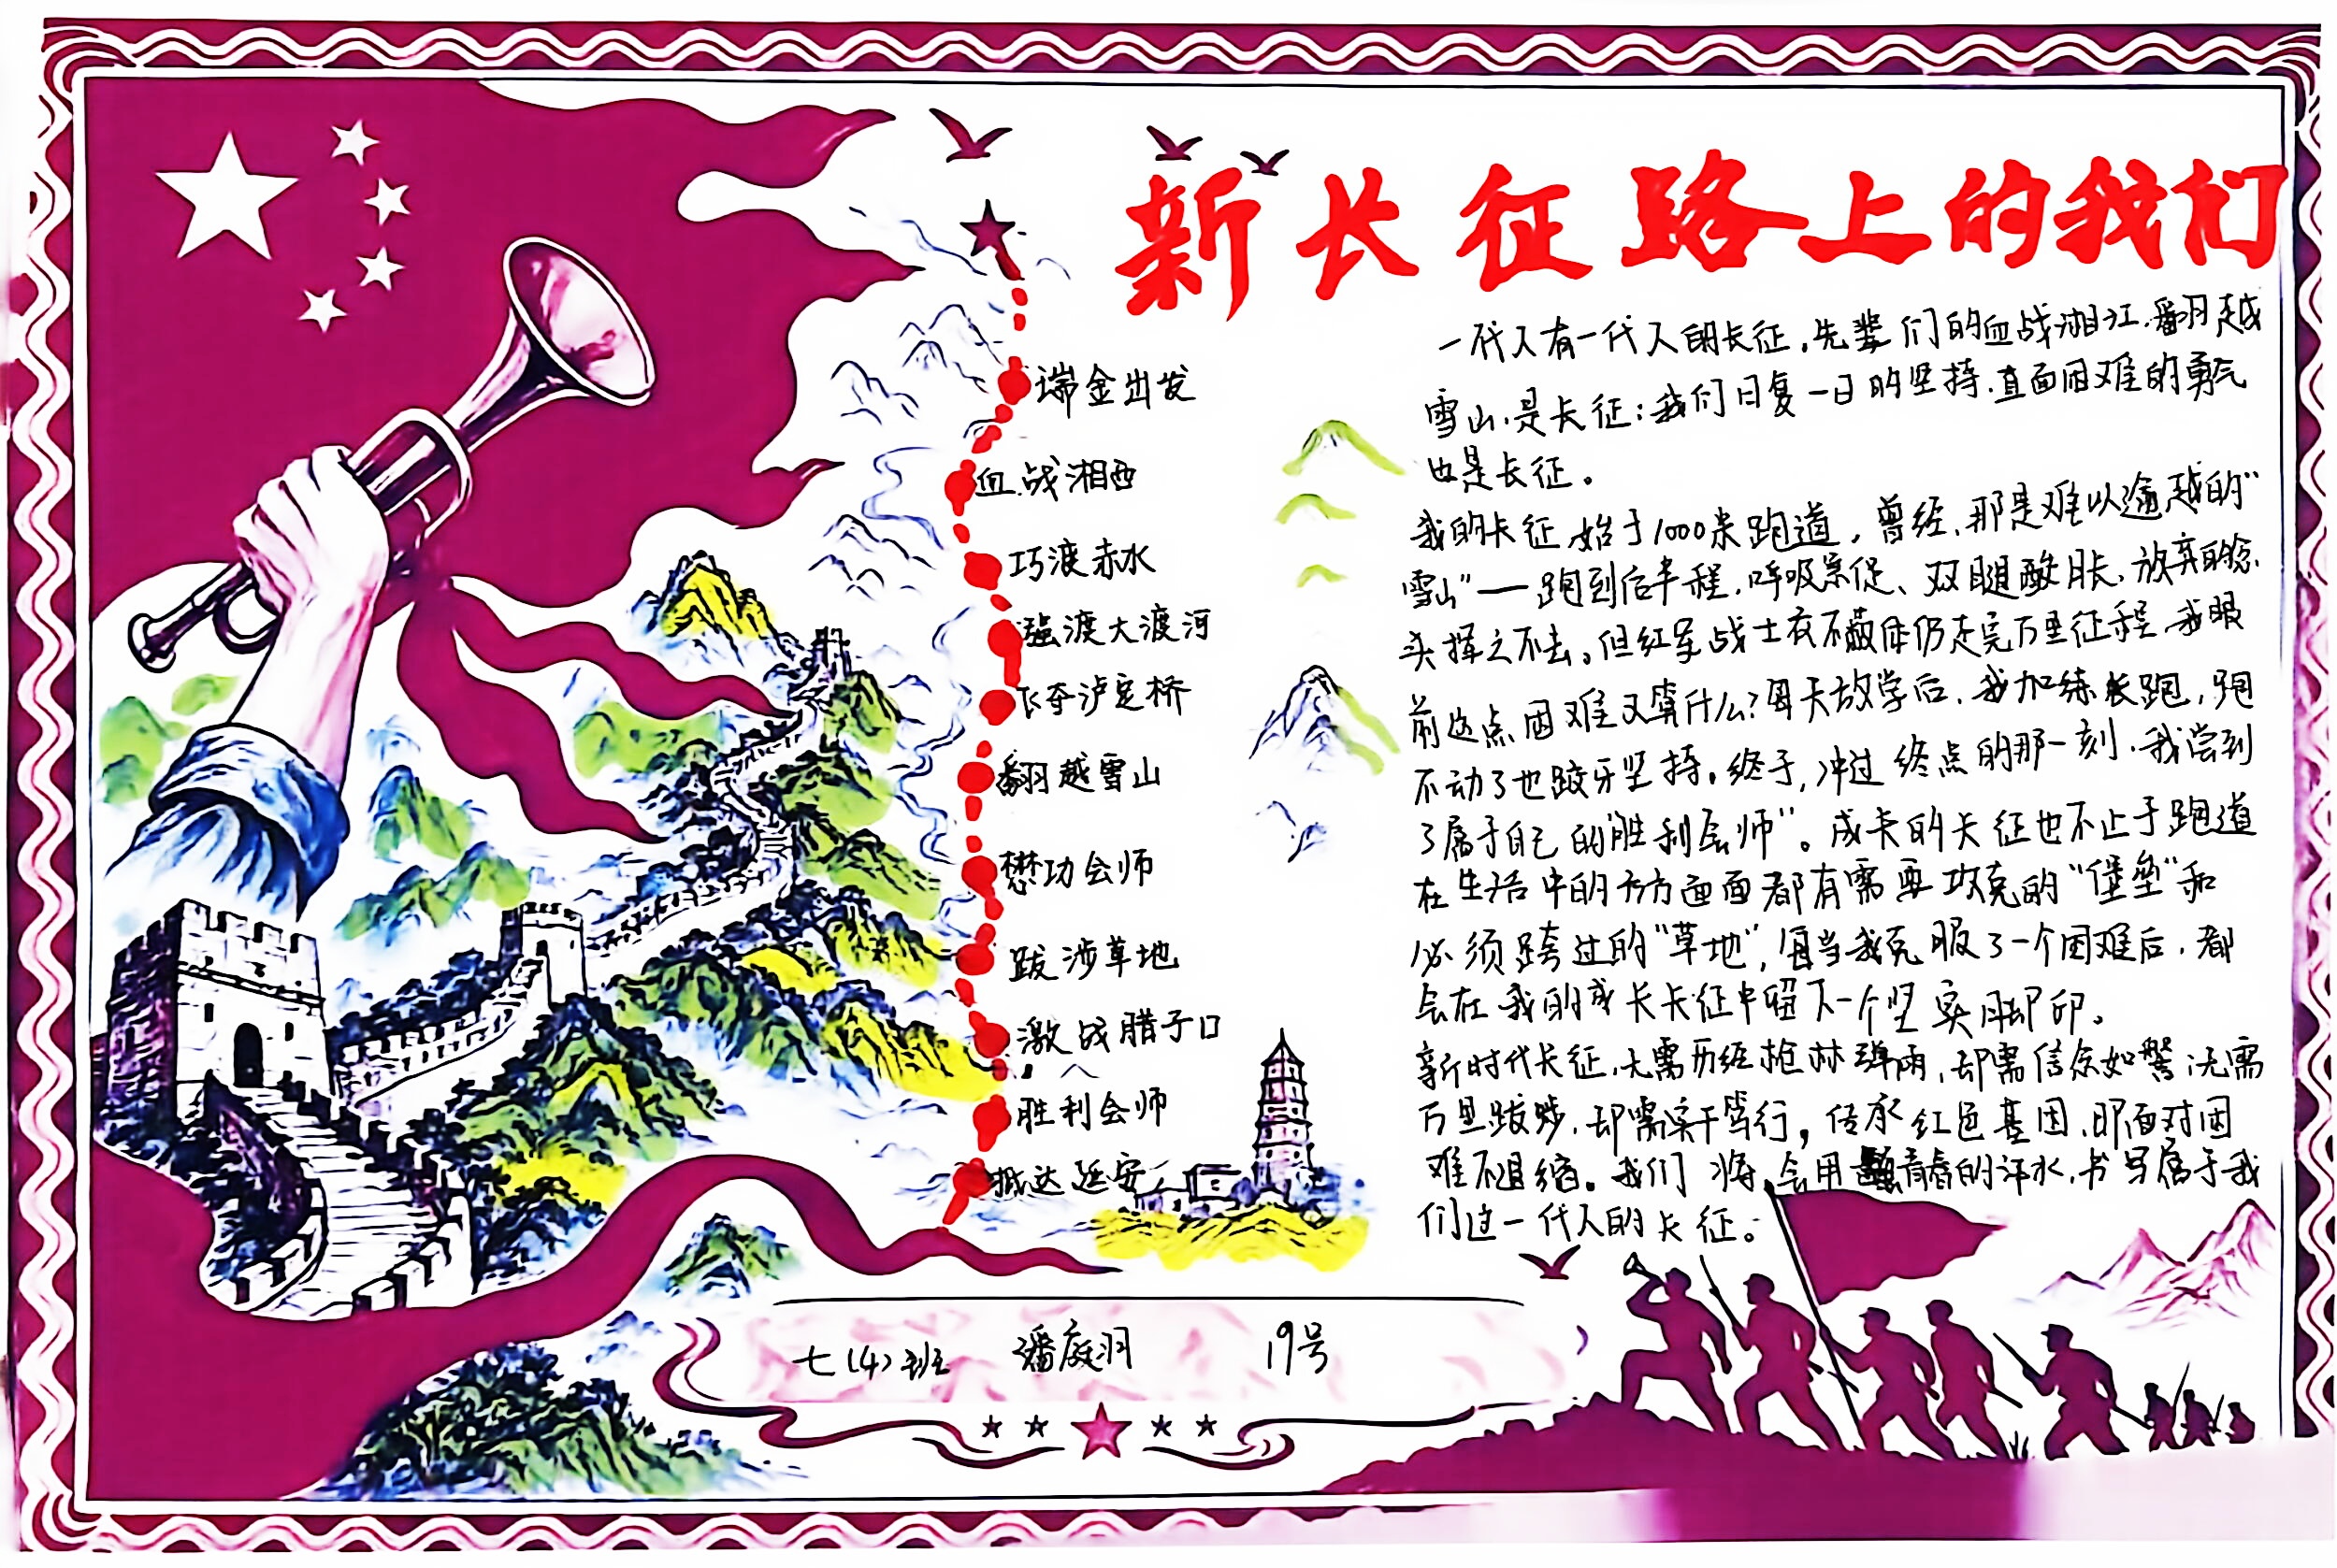 新长征路上的我们
端金出发
血战湘西
巧渡赤水
强渡大渡河
飞夺泸定桥
翻越雪山
懋功会师
跋涉草地
激战腊子口
胜利会师
抵达延安
一代人有一代人的长征，先辈们的血战湘江，翻越
雪山，是长征；我们日复一日的坚持，直面困难的勇气
也是长征。
我的长征，始于1000米跑道，曾经，那是难以逾越的“
雪山”——跑到后半程，呼吸紧促、双腿酸胀，放弃的念
头挥之不去。但红军战士衣不蔽体仍走完万里征程，我眼
前这点困难又算什么？每天放学后，我加练长跑，跑
不动了也咬牙坚持。终于，冲过终点的那一刻，我尝到
了属于自己的“胜利会师”。成长的长征也不止于跑道
在生活中的方方面面都有需要攻克的“堡垒”和
必须跨过的“草地”，每当我克服了一个困难后，都
会在我的成长长征中留下一个坚实脚印。
新时代长征，无需历经枪林弹雨，却需信念如磐；无需
万里跋涉，却需实干笃行，传承红色基因，即面对困
难不退缩。我们将会用青春的汗水，书写属于我
们这一代人的长征。
七（4）班 潘庭羽 19号